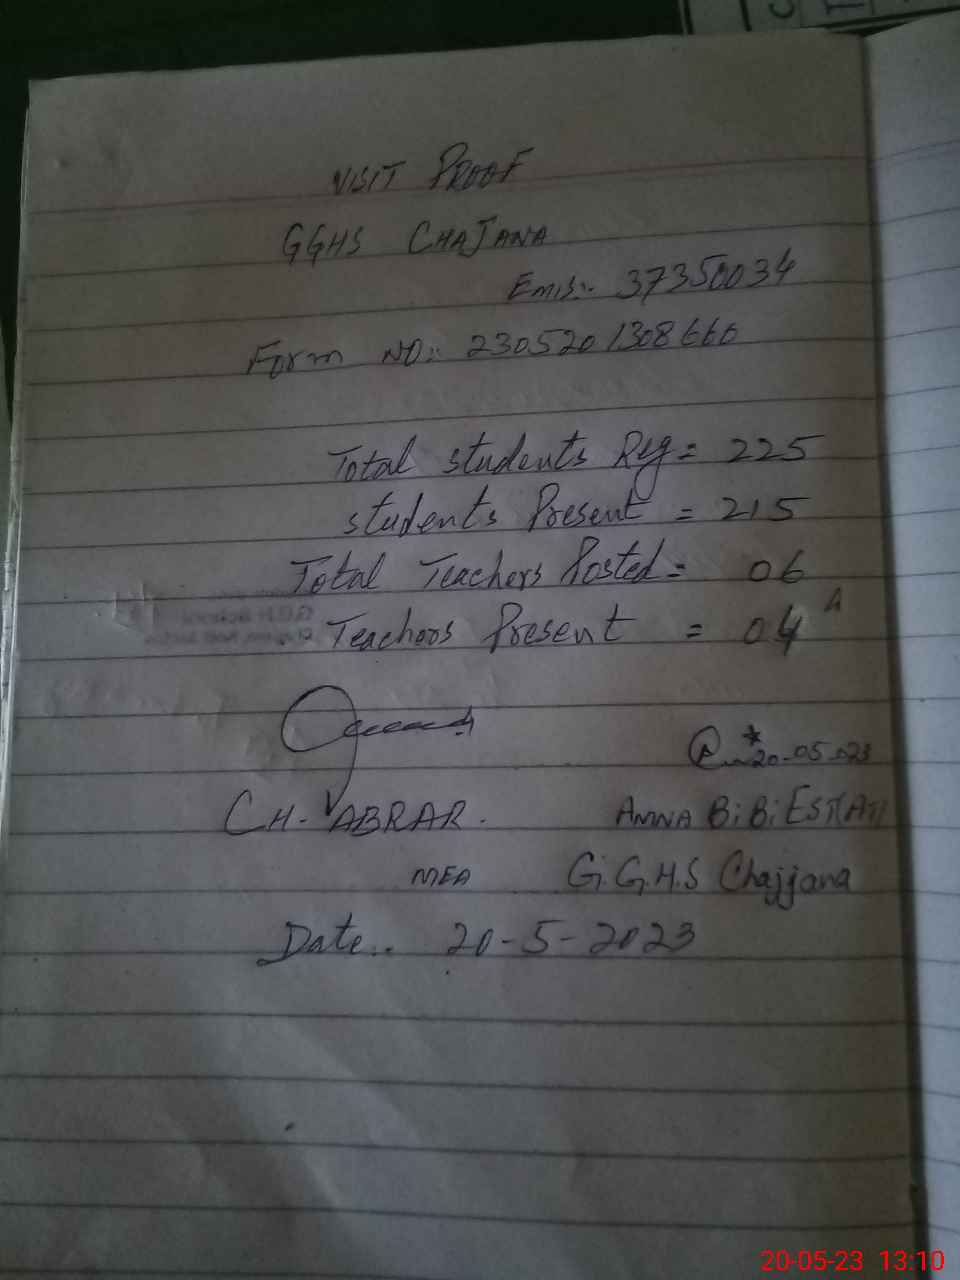 VISIT PROOF
GGHS CHAJANA
Emis:- 37350034
Form NO:- 2305201308660
Total students Reg = 225
students Present = 215
Total Teachers Posted = 06
Teachers Present = 04
20-05-023
CH. ABRAR. AMNA BiBi EST(AT)
MEA G.G.H.S Chajjana
Date:. 20-5-2023
20-05-23 13:10